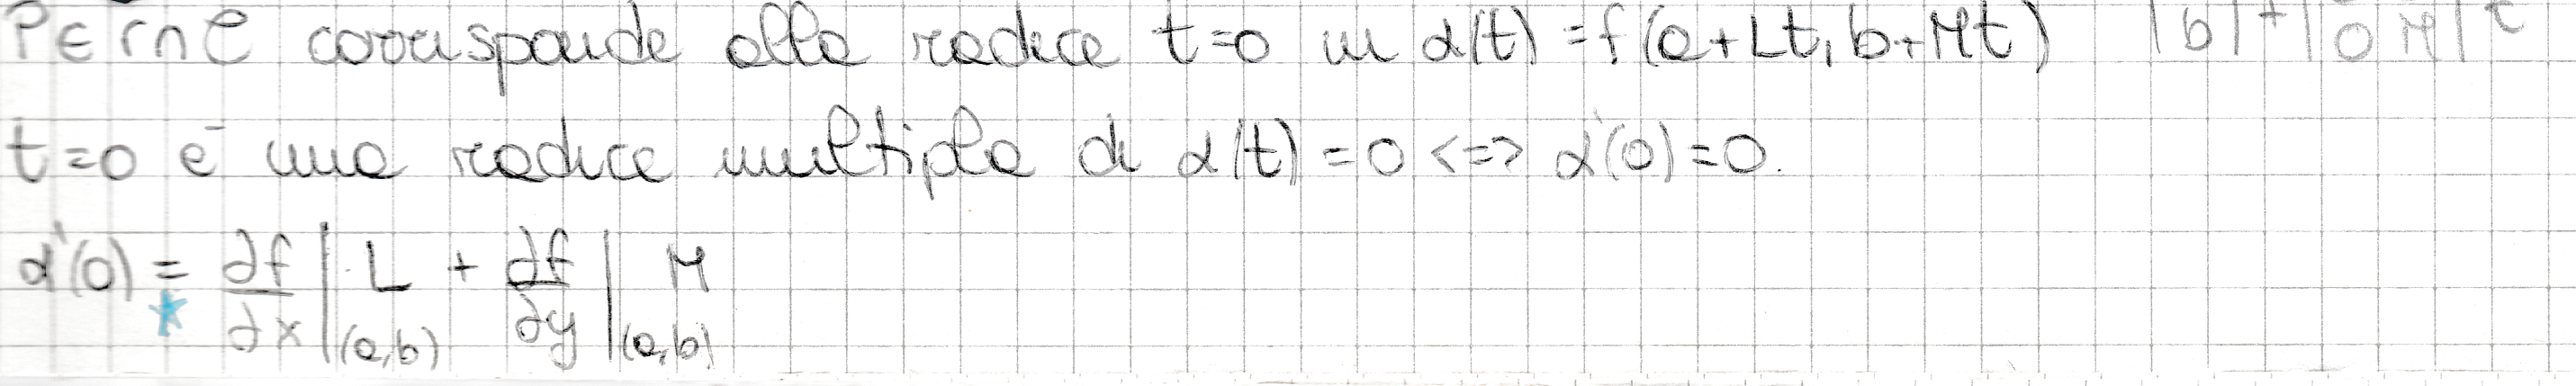 P∈r∩ℓ corrisponde alla radice t=0 in α(t)=f(a+Lt, b+Mt) |b|+|0 M| t
t=0 è una radice multipla di α(t)=0 <=> α'(0)=0.
α'(0) = ∂f/∂x |(a,b) L + ∂f/∂y |(a,b) M